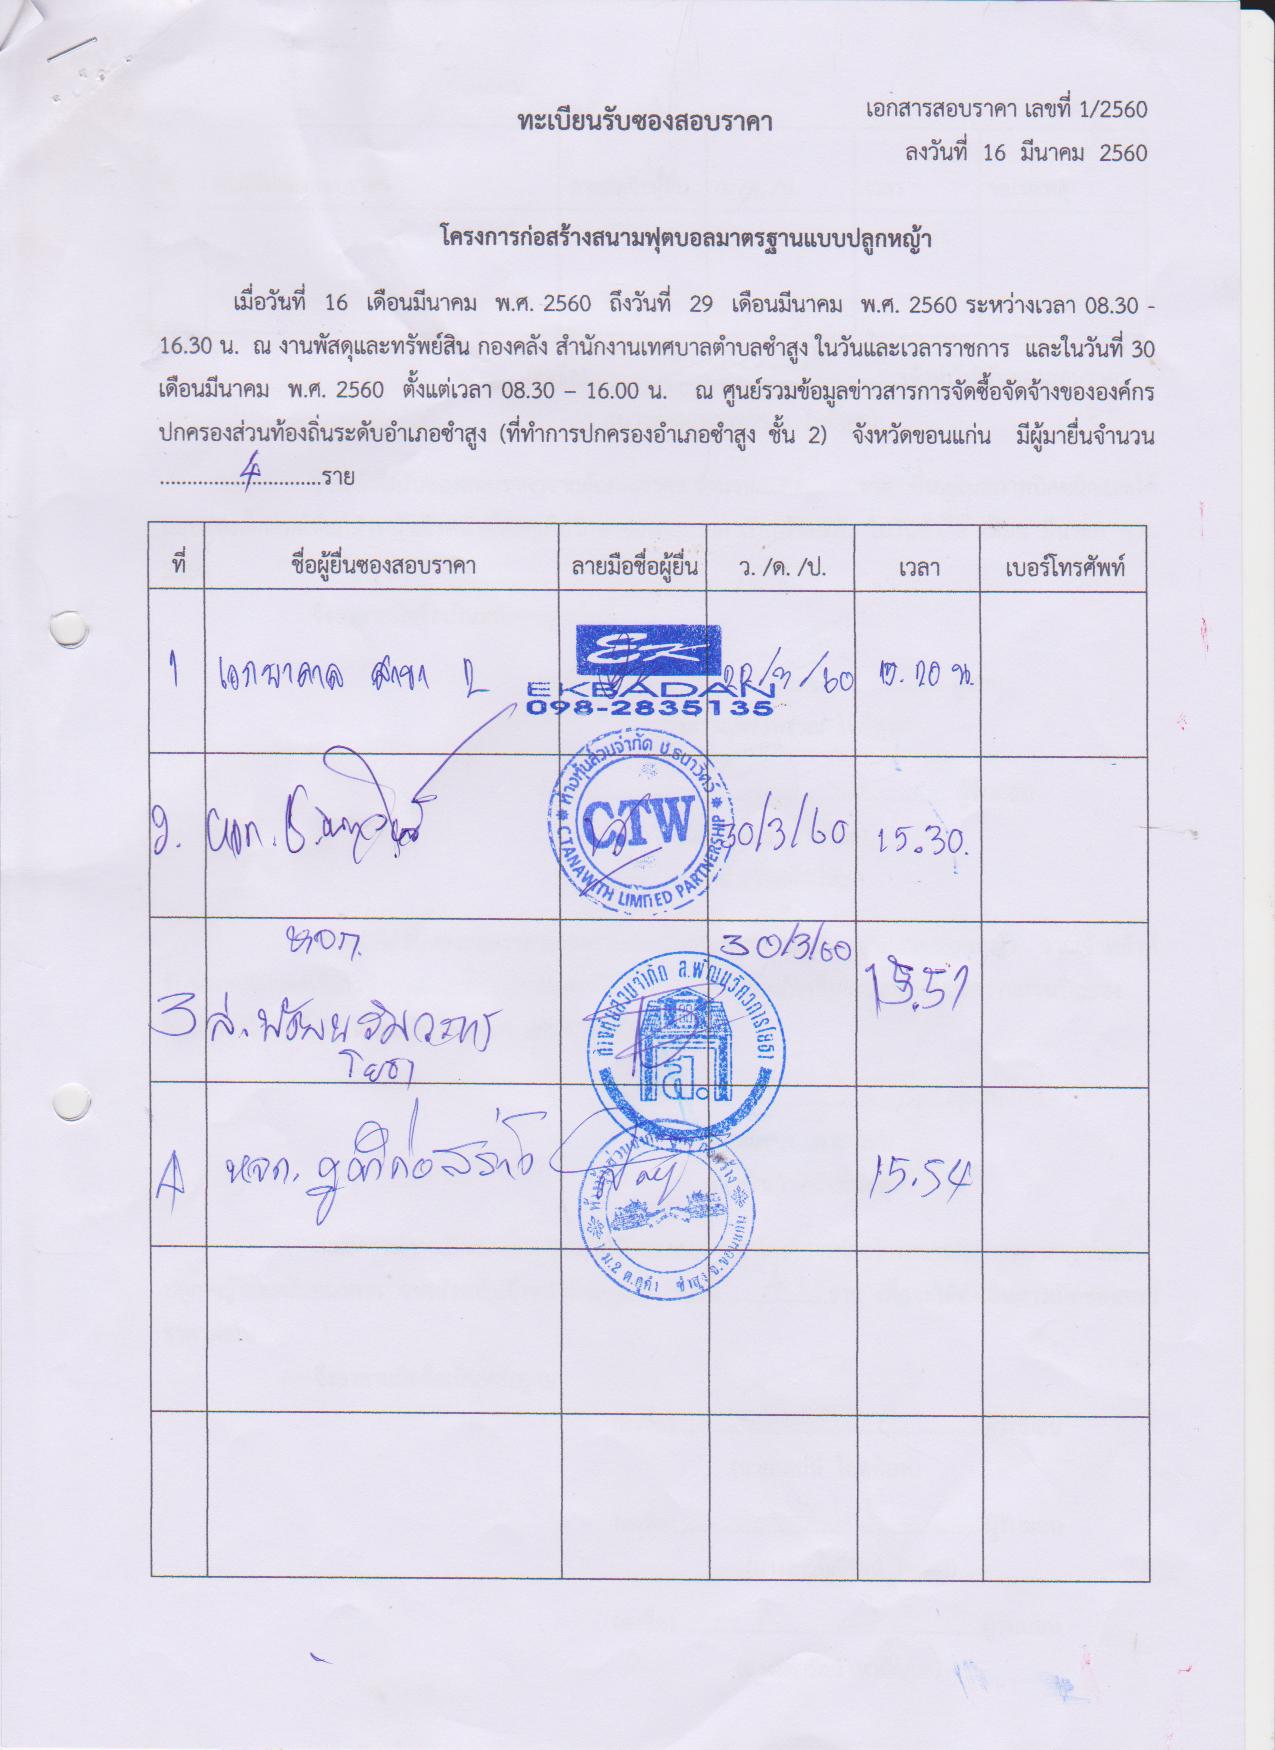 เอกสารสอบราคา เลขที่ 1/2560
ทะเบียนรับซองสอบราคา
ลงวันที่ 16 มีนาคม 2560
โครงการก่อสร้างสนามฟุตบอลมาตรฐานแบบปลูกหญ้า
เมื่อวันที่ 16 เดือนมีนาคม พ.ศ. 2560 ถึงวันที่ 29 เดือนมีนาคม พ.ศ. 2560 ระหว่างเวลา 08.30 -
16.30 น. ณ งานพัสดุและทรัพย์สิน กองคลัง สำนักงานเทศบาลตำบลซำสูง ในวันและเวลาราชการ และในวันที่ 30
เดือนมีนาคม พ.ศ. 2560 ตั้งแต่เวลา 08.30 – 16.00 น. ณ ศูนย์รวมข้อมูลข่าวสารการจัดซื้อจัดจ้างขององค์กร
ปกครองส่วนท้องถิ่นระดับอำเภอซำสูง (ที่ทำการปกครองอำเภอซำสูง ชั้น 2) จังหวัดขอนแก่น มีผู้มายื่นจำนวน
................4............ราย
ที่ ชื่อผู้ยื่นซองสอบราคา ลายมือชื่อผู้ยื่น ว. /ด. /ป. เวลา เบอร์โทรศัพท์
1 22/3/60
EK
EKBADAN
098-2835135
2. หจก. 30/3/60 15.30.
ห้างหุ้นส่วนจำกัด ช.ธนาวิศว์
CTW
CTANAWITH LIMITED PARTNERSHIP
หจก. 30/3/60
3 15.51
ส.
โยธา
4 หจก. 15.54
ม.2 ต.คูคำ